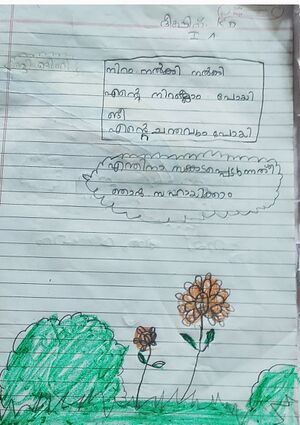 K D
I A
നിറം നൽങ്കി നൽങ്കി
എന്റെ നിറമെല്ലാം പോയി
എന്റെ ചന്തവും പോയി
എന്തിനാ സങ്കടപ്പെടുന്നത്
ഞാൻ സഹായിക്കാം